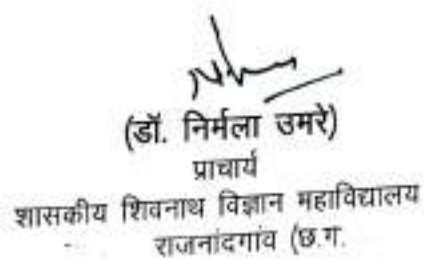 (डॉ. निर्मला उमरे)
प्राचार्य
शासकीय शिवनाथ विज्ञान महाविद्यालय
राजनांदगांव (छ.ग.